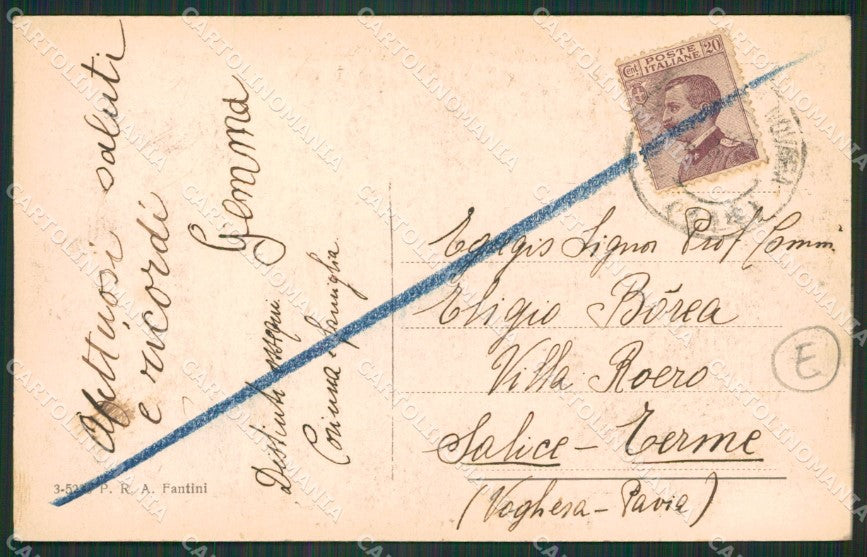 Affettuosi saluti
e ricordi
Gemma
Distinti ossequi
Corinna e famiglia
POSTE
ITALIANE
Cent 20
Egregio Signor Prof Comm
Eligio Bòrea
Villa Roero
Salice - Terme
(Voghera - Pavia)
E
P. R. A. Fantini
CARTOLINOMANIA